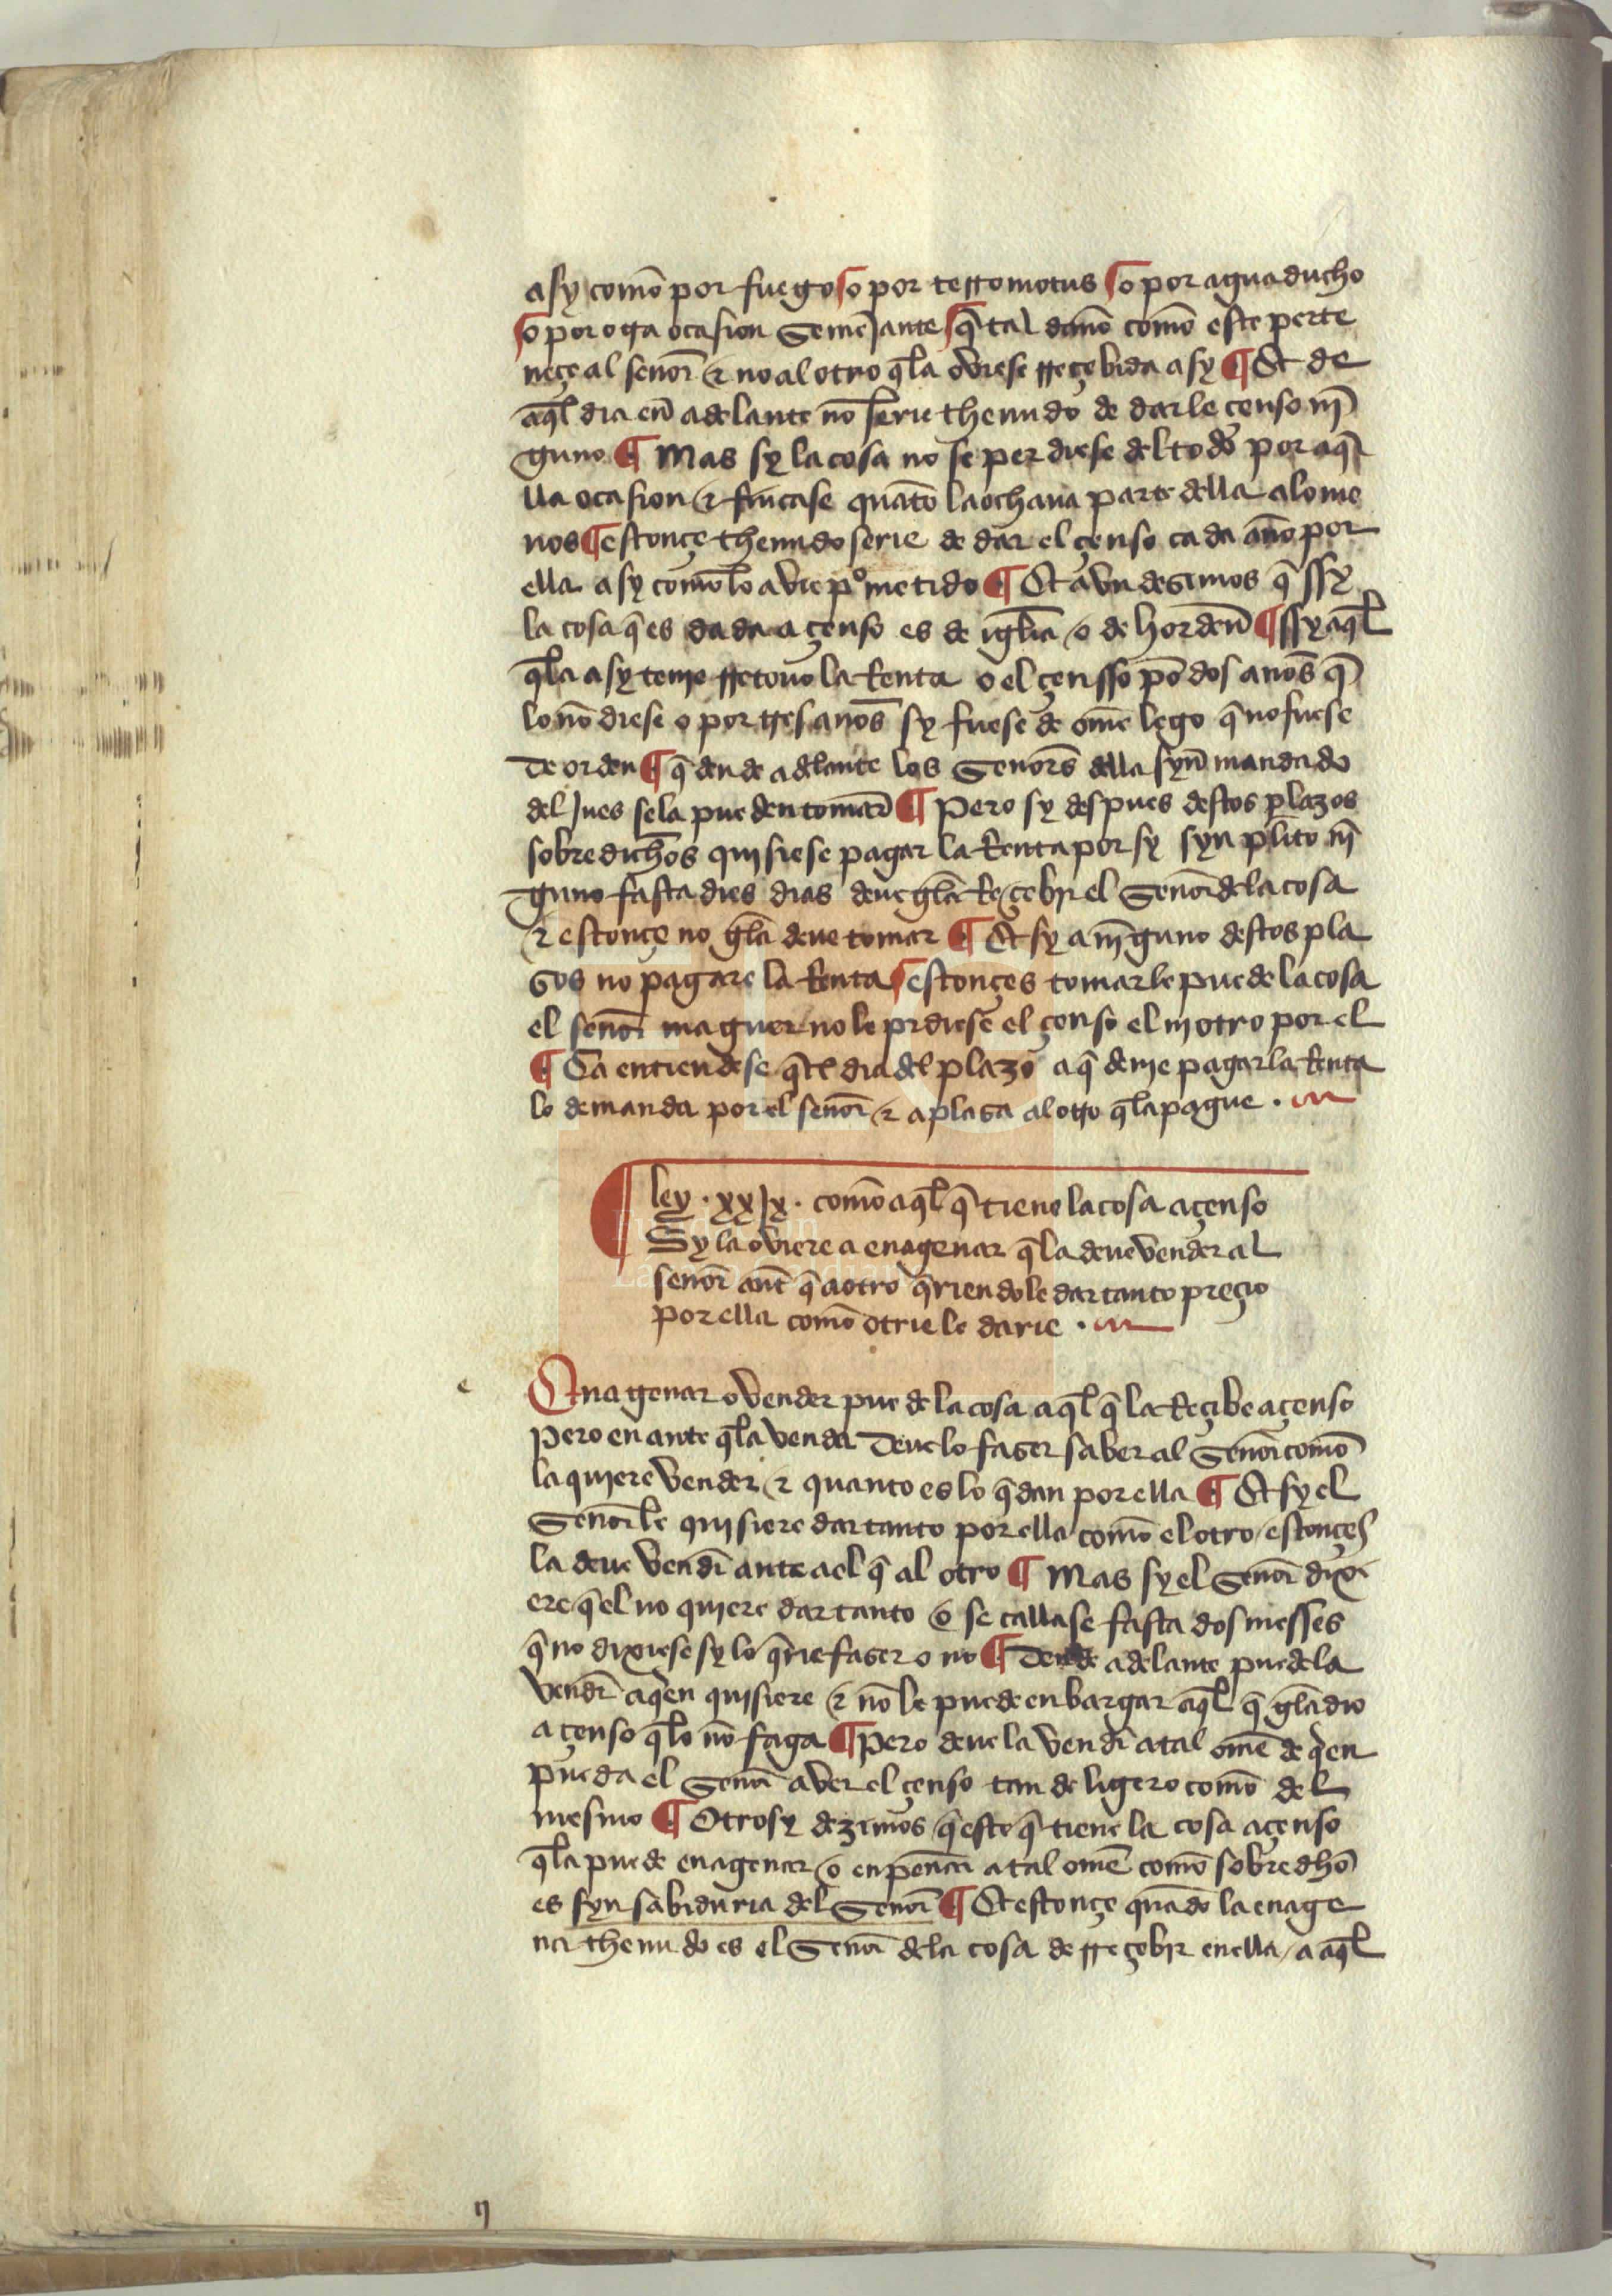 asy comō por fuego ⸿ o por terromotus ⸿ o por aguaducho
⸿ o por otra ocasion semējante ⸿ q̄ tal danō comō este perte
neçe al senor̄ & no al otro q̄la oviese rreçebida asy ¶ Et de
aq̄l dia en̄ adelante nō serie thenudo de darle çenso nī
guno ¶ Mas sy la cosa no se perdiese del todo por aq̄
lla ocasion & fincase quātо la ochaua parte della alome
nos ¶ estonçe thenudo serie de dar el çenso cada anō por
ella asy comō lo avie pometido ¶ Et avn desimos q̄ ssy
la cosa q̄ es dada a çenso es de igl̄ia o de horden̄ ¶ ssy aq̄l
q̄la asy tenie rretouo la Renta o el çensso pō dos anōs q̄
lo nō diese o por tres anōs sy fuese de omē lego q̄ no fuese
de orden ¶ q̄ dende adelante los Senorēs della syn̄ mandado
del Jues sela pueden tomar̄ ¶ Pero sy despues destos plazos
sobredichōs quisiese pagar la Renta por sy syn pl̄ito nī
guno fasta dies dias deue gel̄a Reçebir el Senor̄ dela cosa
& estonçe no gel̄a deue tomar ¶ Et sy a nīguno destos pla
sos no pagare la Renta ⸿ estonçes tomarle puede la cosa
el senor̄ maguer no le pidiese el çenso el ni otro por el
¶ Ca entiendese q̄ el dia del plazo a q̄ deuie pagar la Renta
lo demanda por el senor̄ & aplasa al otro q̄la pague .
¶ ley . xxjx . comō aq̄l q̄ tiene la cosa a çenso
Sy la oviere a enagenar q̄ la deue vender al
senor̄ ant̄ q̄ a otro q̄riendole dar tanto preçio
por ella comō otrie le darie .
e Enagenar o vender puede la cosa aq̄l q̄ la Reçibe a çenso
Pero en ante q̄la venda deuelo faser saber al Senor̄ comō
la quiere vender & quanto es lo q̄ dan por ella ¶ Et sy el
Senor̄ le quisiere dar tanto por ella comō el otro / estonçes
la deue vendr̄ ante a el q̄ al otro ¶ Mas sy el Senor̄ dixi
ere q̄ el no quiere dar tanto o se callase fasta dos messes
q̄ no dixiese sy lo q̄rie faser o no ¶ Dende adelante puedela
vendr̄ a q̄en quisiere & nō le puede enbargar aq̄l q̄ gel̄a dio
a çenso q̄lo nō faga ¶ Pero deuela vendr̄ a tal omē de q̄en
pueda el Senor̄ aver el çenso tan de ligero comō del
mesmo ¶ Otrosy dezimos q̄ este q̄ tiene la cosa a çenso
q̄la puede enagenar o enpenar̄ a tal omē comō sobredhō
es syn sabiduria del Senor̄ ¶ Et estonçe quādo la enage
na thenudo es el Senor̄ dela cosa de rreçebir en ella / a aq̄l